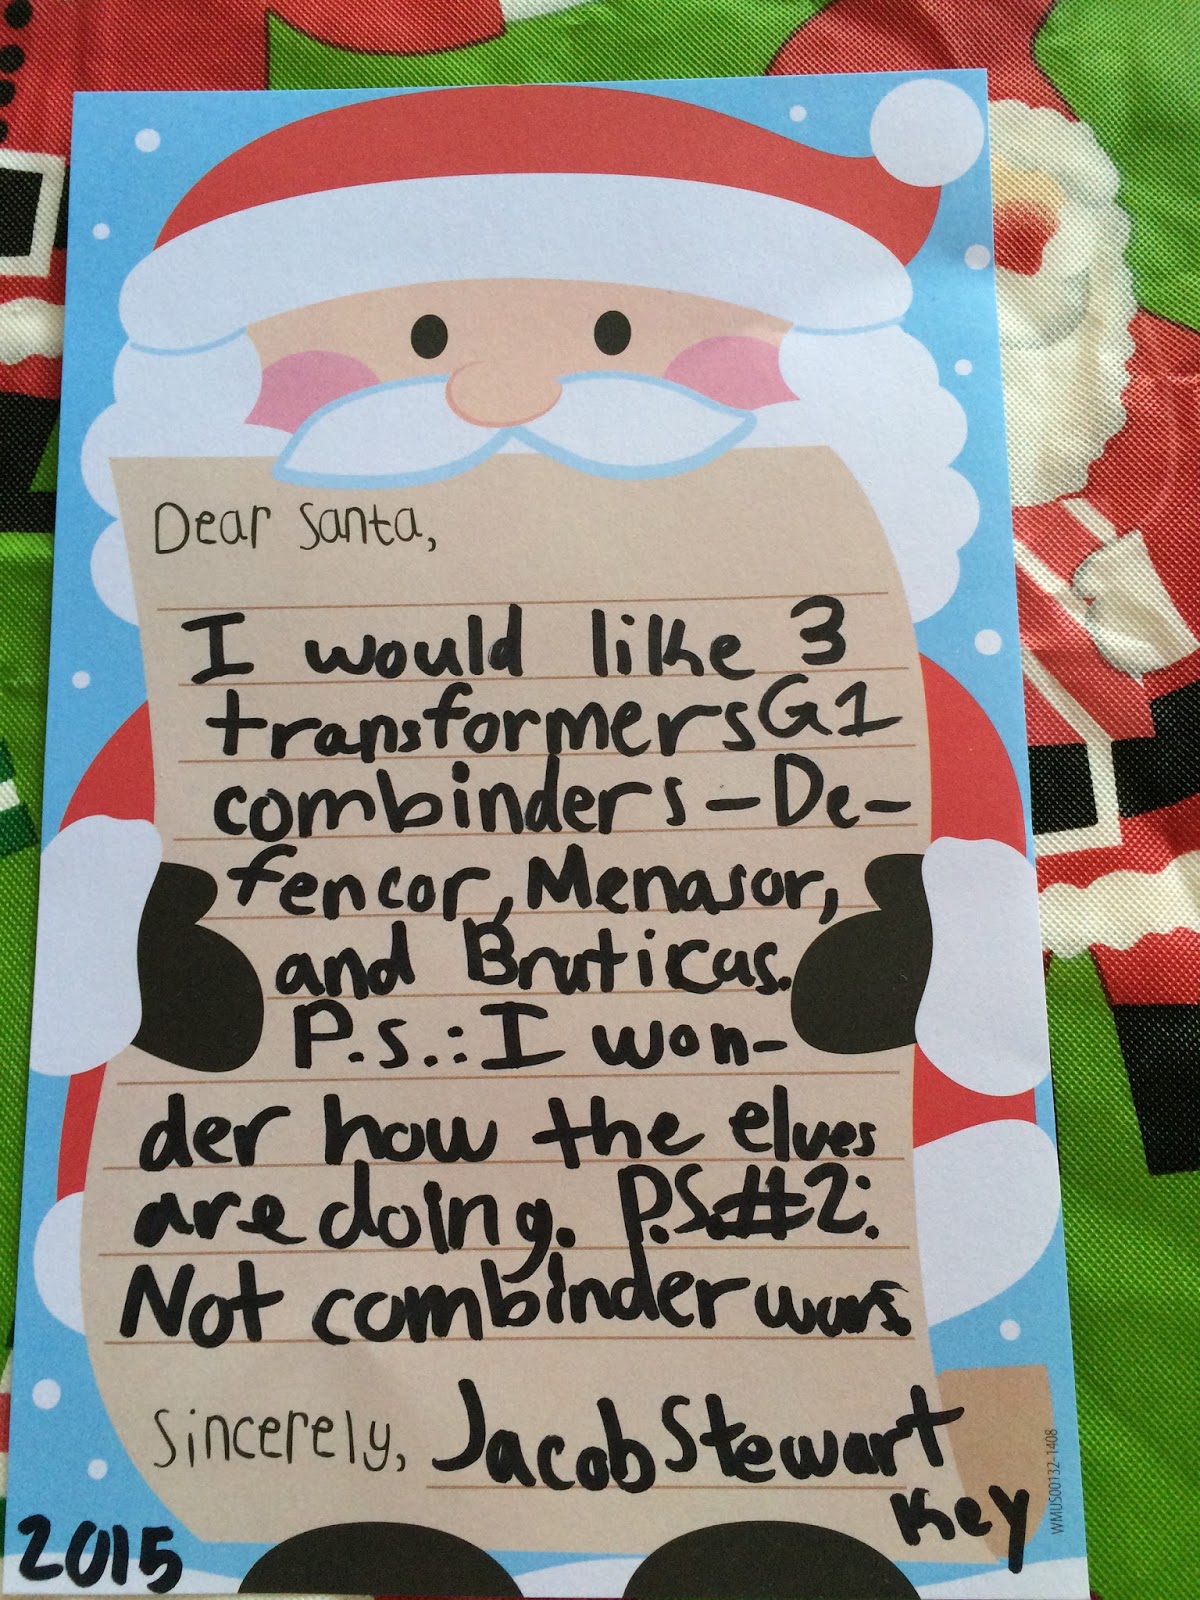 Dear Santa,
I would like 3
transformers G1
combinders - De-
fencor, Menasor,
and Bruticas.
P.s.: I won-
der how the elves
are doing. P.S.#2:
Not combinder wars.
Sincerely, Jacob Stewart
Key
2015
WMUS00132-1408